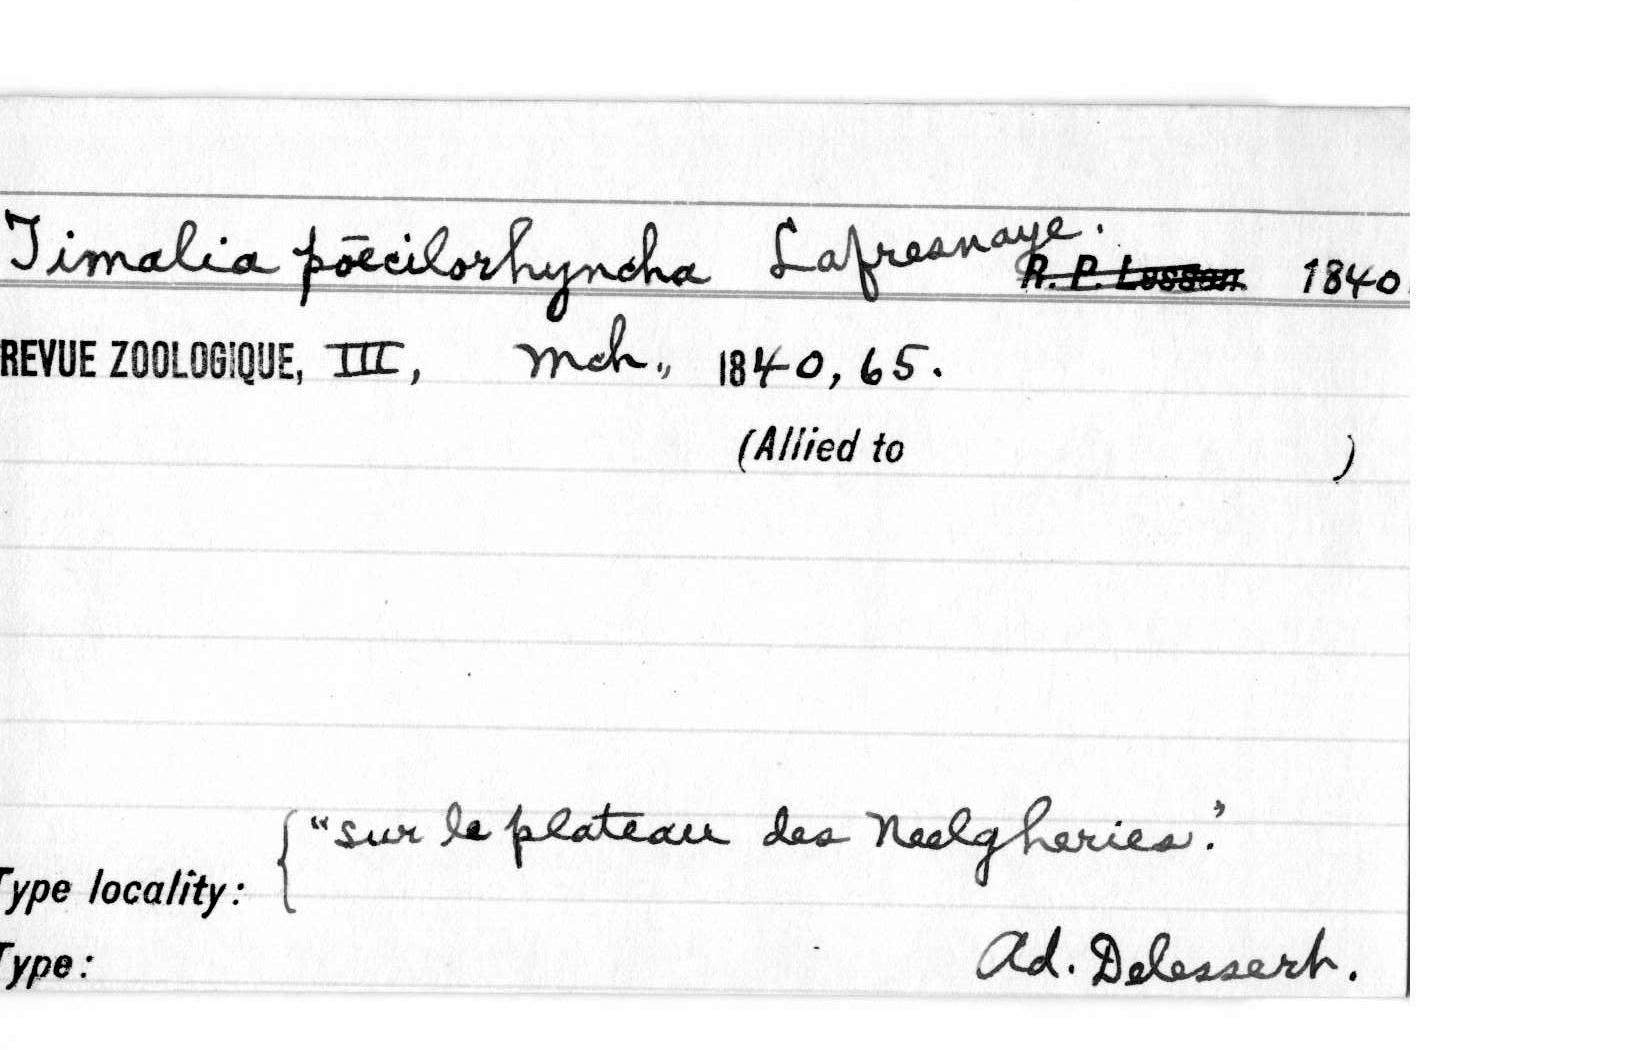 Timalia pōēcilorhyncha Lafresnaye.
R. P. Lesson 1840
REVUE ZOOLOGIQUE, III, Mch., 1840, 65.
(Allied to )
"sur le plateau des Neelgheries."
Type locality:
Type: Ad. Delessert.